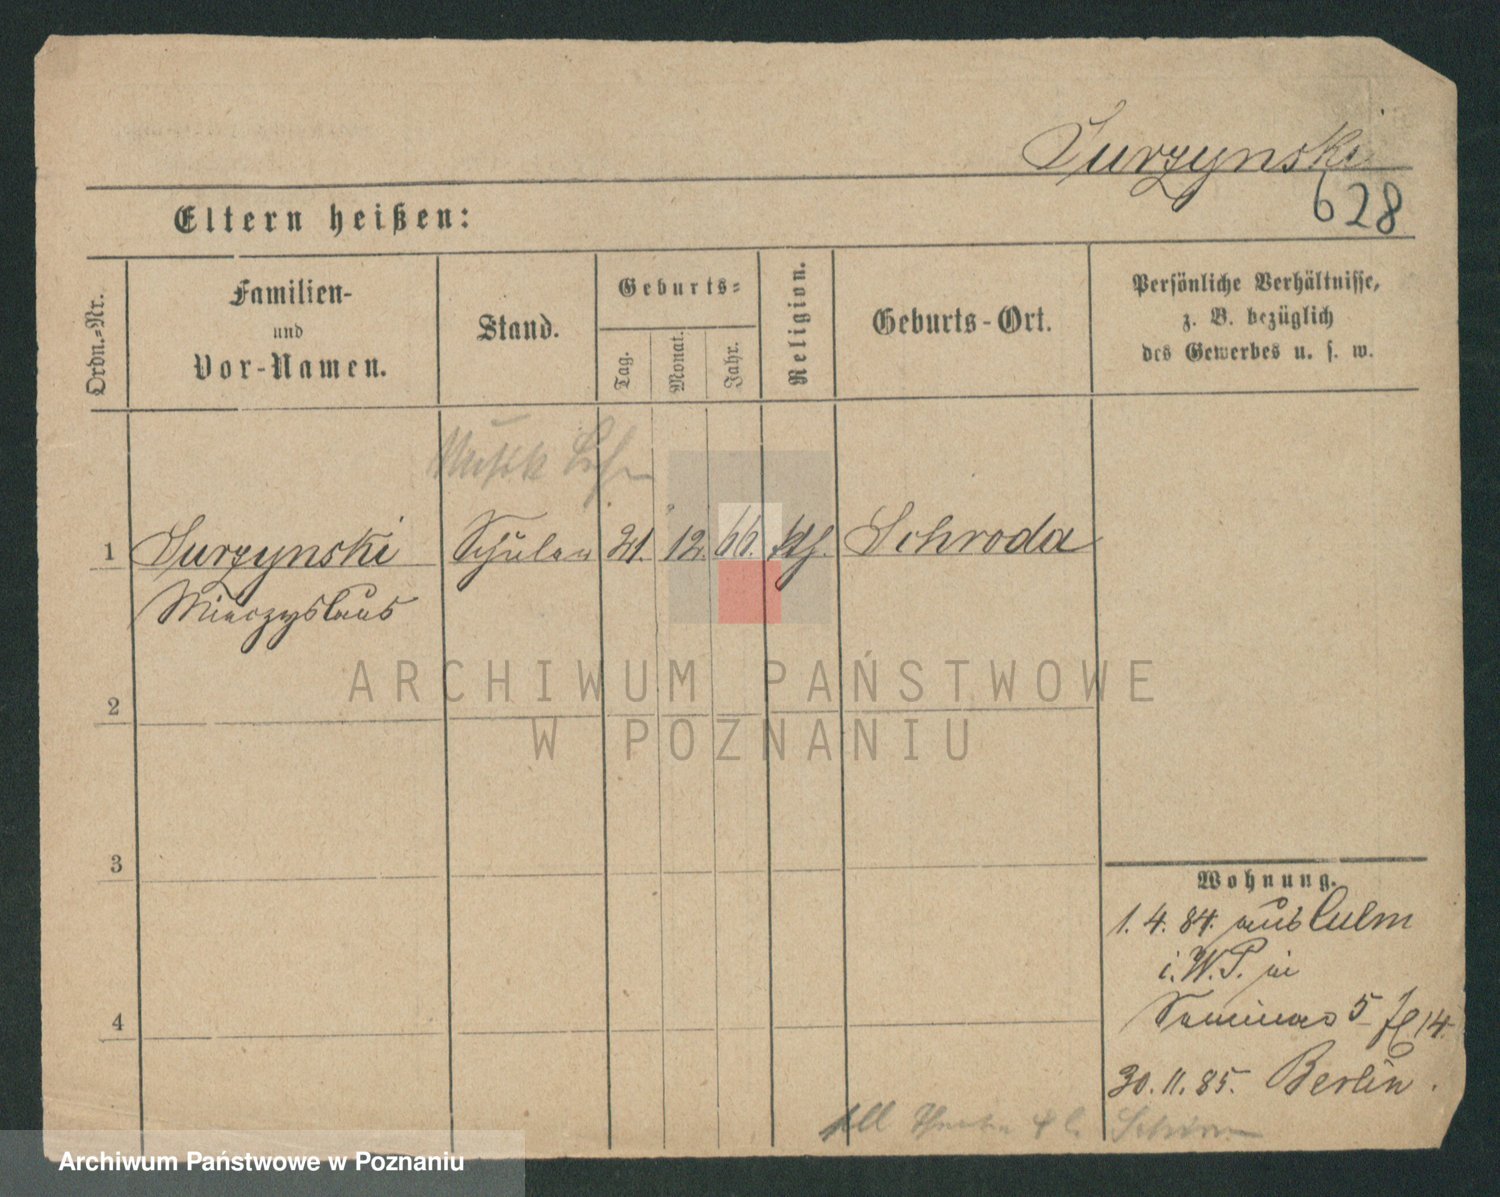 Surzynski
628
Eltern heißen:
Ordn.-Nr.
Familien-
und
Vor-Namen.
Stand.
Geburts-
Tag.
Monat.
Jahr.
Religion.
Geburts-Ort.
Persönliche Verhältnisse,
z. B. bezüglich
des Gewerbes u. s. w.
Musik
1 Surzynski Schüler 21. 12. 66. kth. Schroda
Mieczyslaus
ARCHIWUM PAŃSTWOWE
W POZNANIU
2
3
4
Wohnung.
1. 4. 84. aus Culm
i. W. P. in
5 14.
30. 11. 85. Berlin.
Archiwum Państwowe w Poznaniu